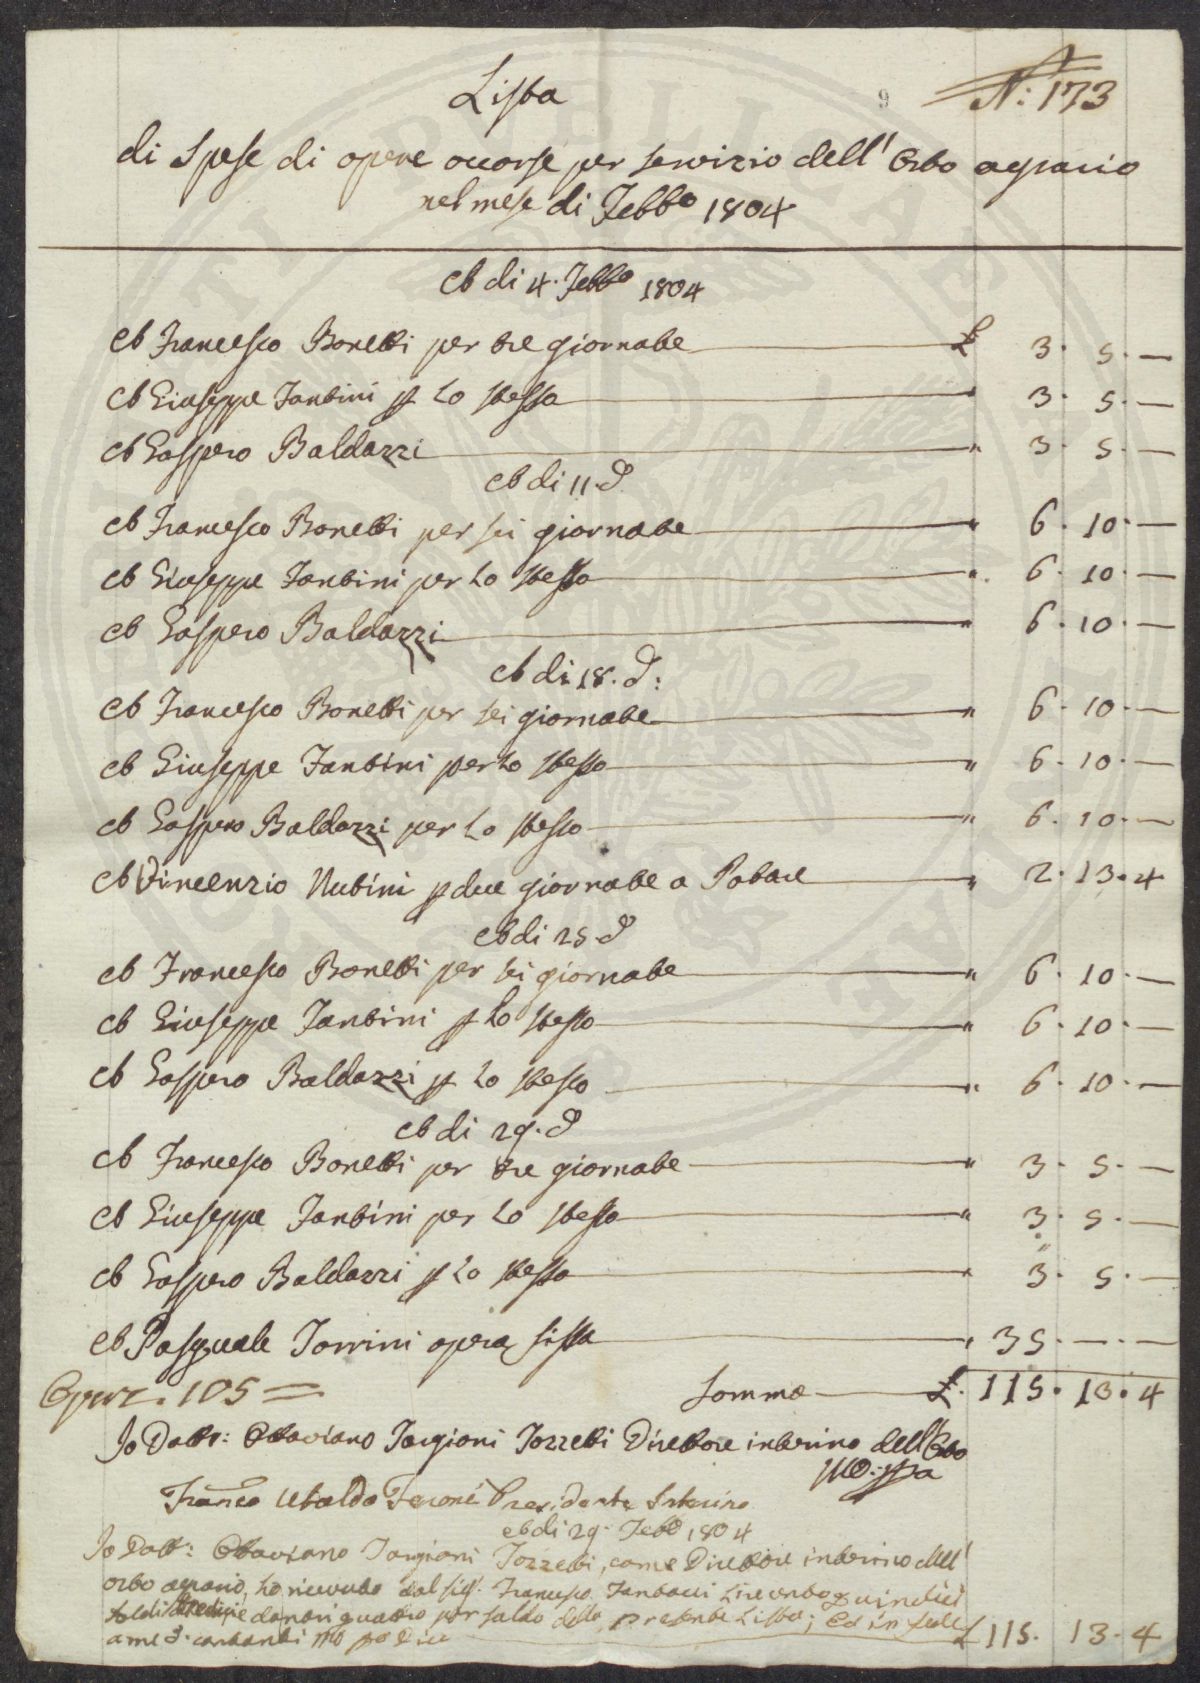 N.° 173
9
Lista
di Spese di opere occorse per servizio dell' Orto agrario
nel mese di Febb.o 1804
A di 4. Febb.o 1804
A Francesco Bonetti per tre giornate £ 3. 5. —
A Giuseppe Tantini p lo stesso " 3. 5. —
A Gaspero Baldazzi " 3. 5. —
A di 11. d.
A Francesco Bonetti per sei giornate " 6. 10. —
A Giuseppe Tantini per lo stesso " 6. 10. —
A Gaspero Baldazzi " 6. 10. —
A di 18. d:
A Francesco Bonetti per sei giornate " 6. 10. —
A Giuseppe Tantini per lo stesso " 6. 10. —
A Gaspero Baldazzi per lo stesso " 6. 10. —
A Vincenzio Nutini p due giornate a Potare " 2. 13. 4
A di 25 d
A Francesco Bonetti per sei giornate " 6. 10. —
A Giuseppe Tantini p lo stesso " 6. 10. —
A Gaspero Baldazzi p lo stesso " 6. 10. —
A di 29. d
A Francesco Bonetti per tre giornate " 3. 5. —
A Giuseppe Tantini per lo stesso " 3. 5. —
A Gaspero Baldazzi p lo stesso " 3. 5. —
A Pasquale Torrini opera fissa " 35. — . —
Opere. 105 =
Somma £. 115. 13. 4
Io Dott.: Ottaviano Targioni Tozzetti Direttore interino dell' Orto
M.o p.pa
Franc.o Ubaldo Feroni Presidente Interino
A di 29. Febb.o 1804
Io Dott: Ottaviano Targioni Tozzetti, come Direttore interino dell'
orto agrario, ho ricevuto dal Sig.r Francesco Lire cento quindici
soldi tredici e danari quattro per saldo della presente Lista; ed in fede
a me d. contanti £ 115. 13. 4